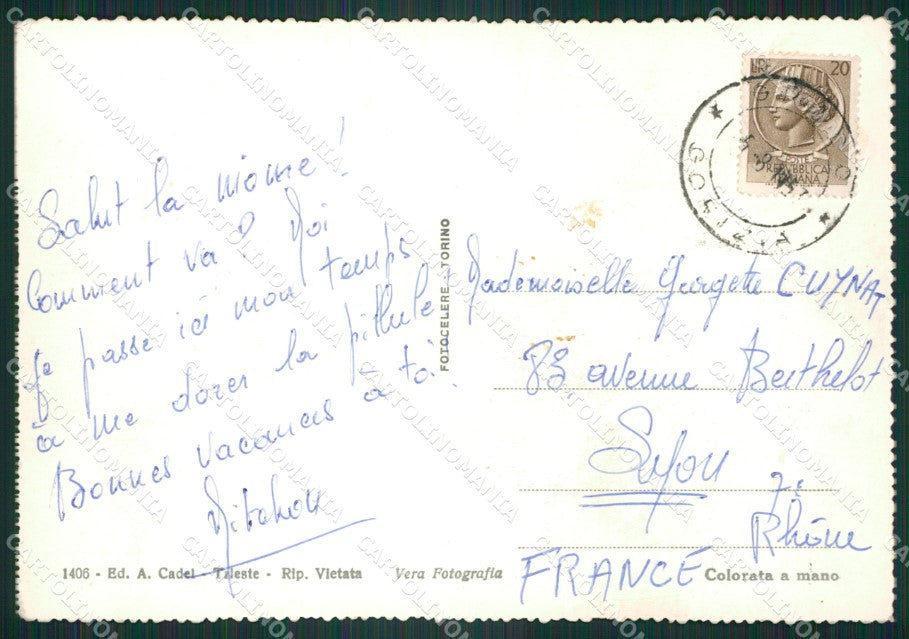 Salut la môme!
Comment va? Moi
je passe ici mon temps
à me dorer la pillule
Bonnes vacances à toi.
FOTOCELERE - TORINO
LIRE 20
REPUBBLICA
ITALIANA
GORIZIA
Mademoiselle Georgette CUYNAT
83 avenue Berthelot
Lyon 7e
Rhône
FRANCE
1406 - Ed. A. Cadel - Trieste - Rip. Vietata
Vera Fotografia
Colorata a mano
CARTOLINOMANIA